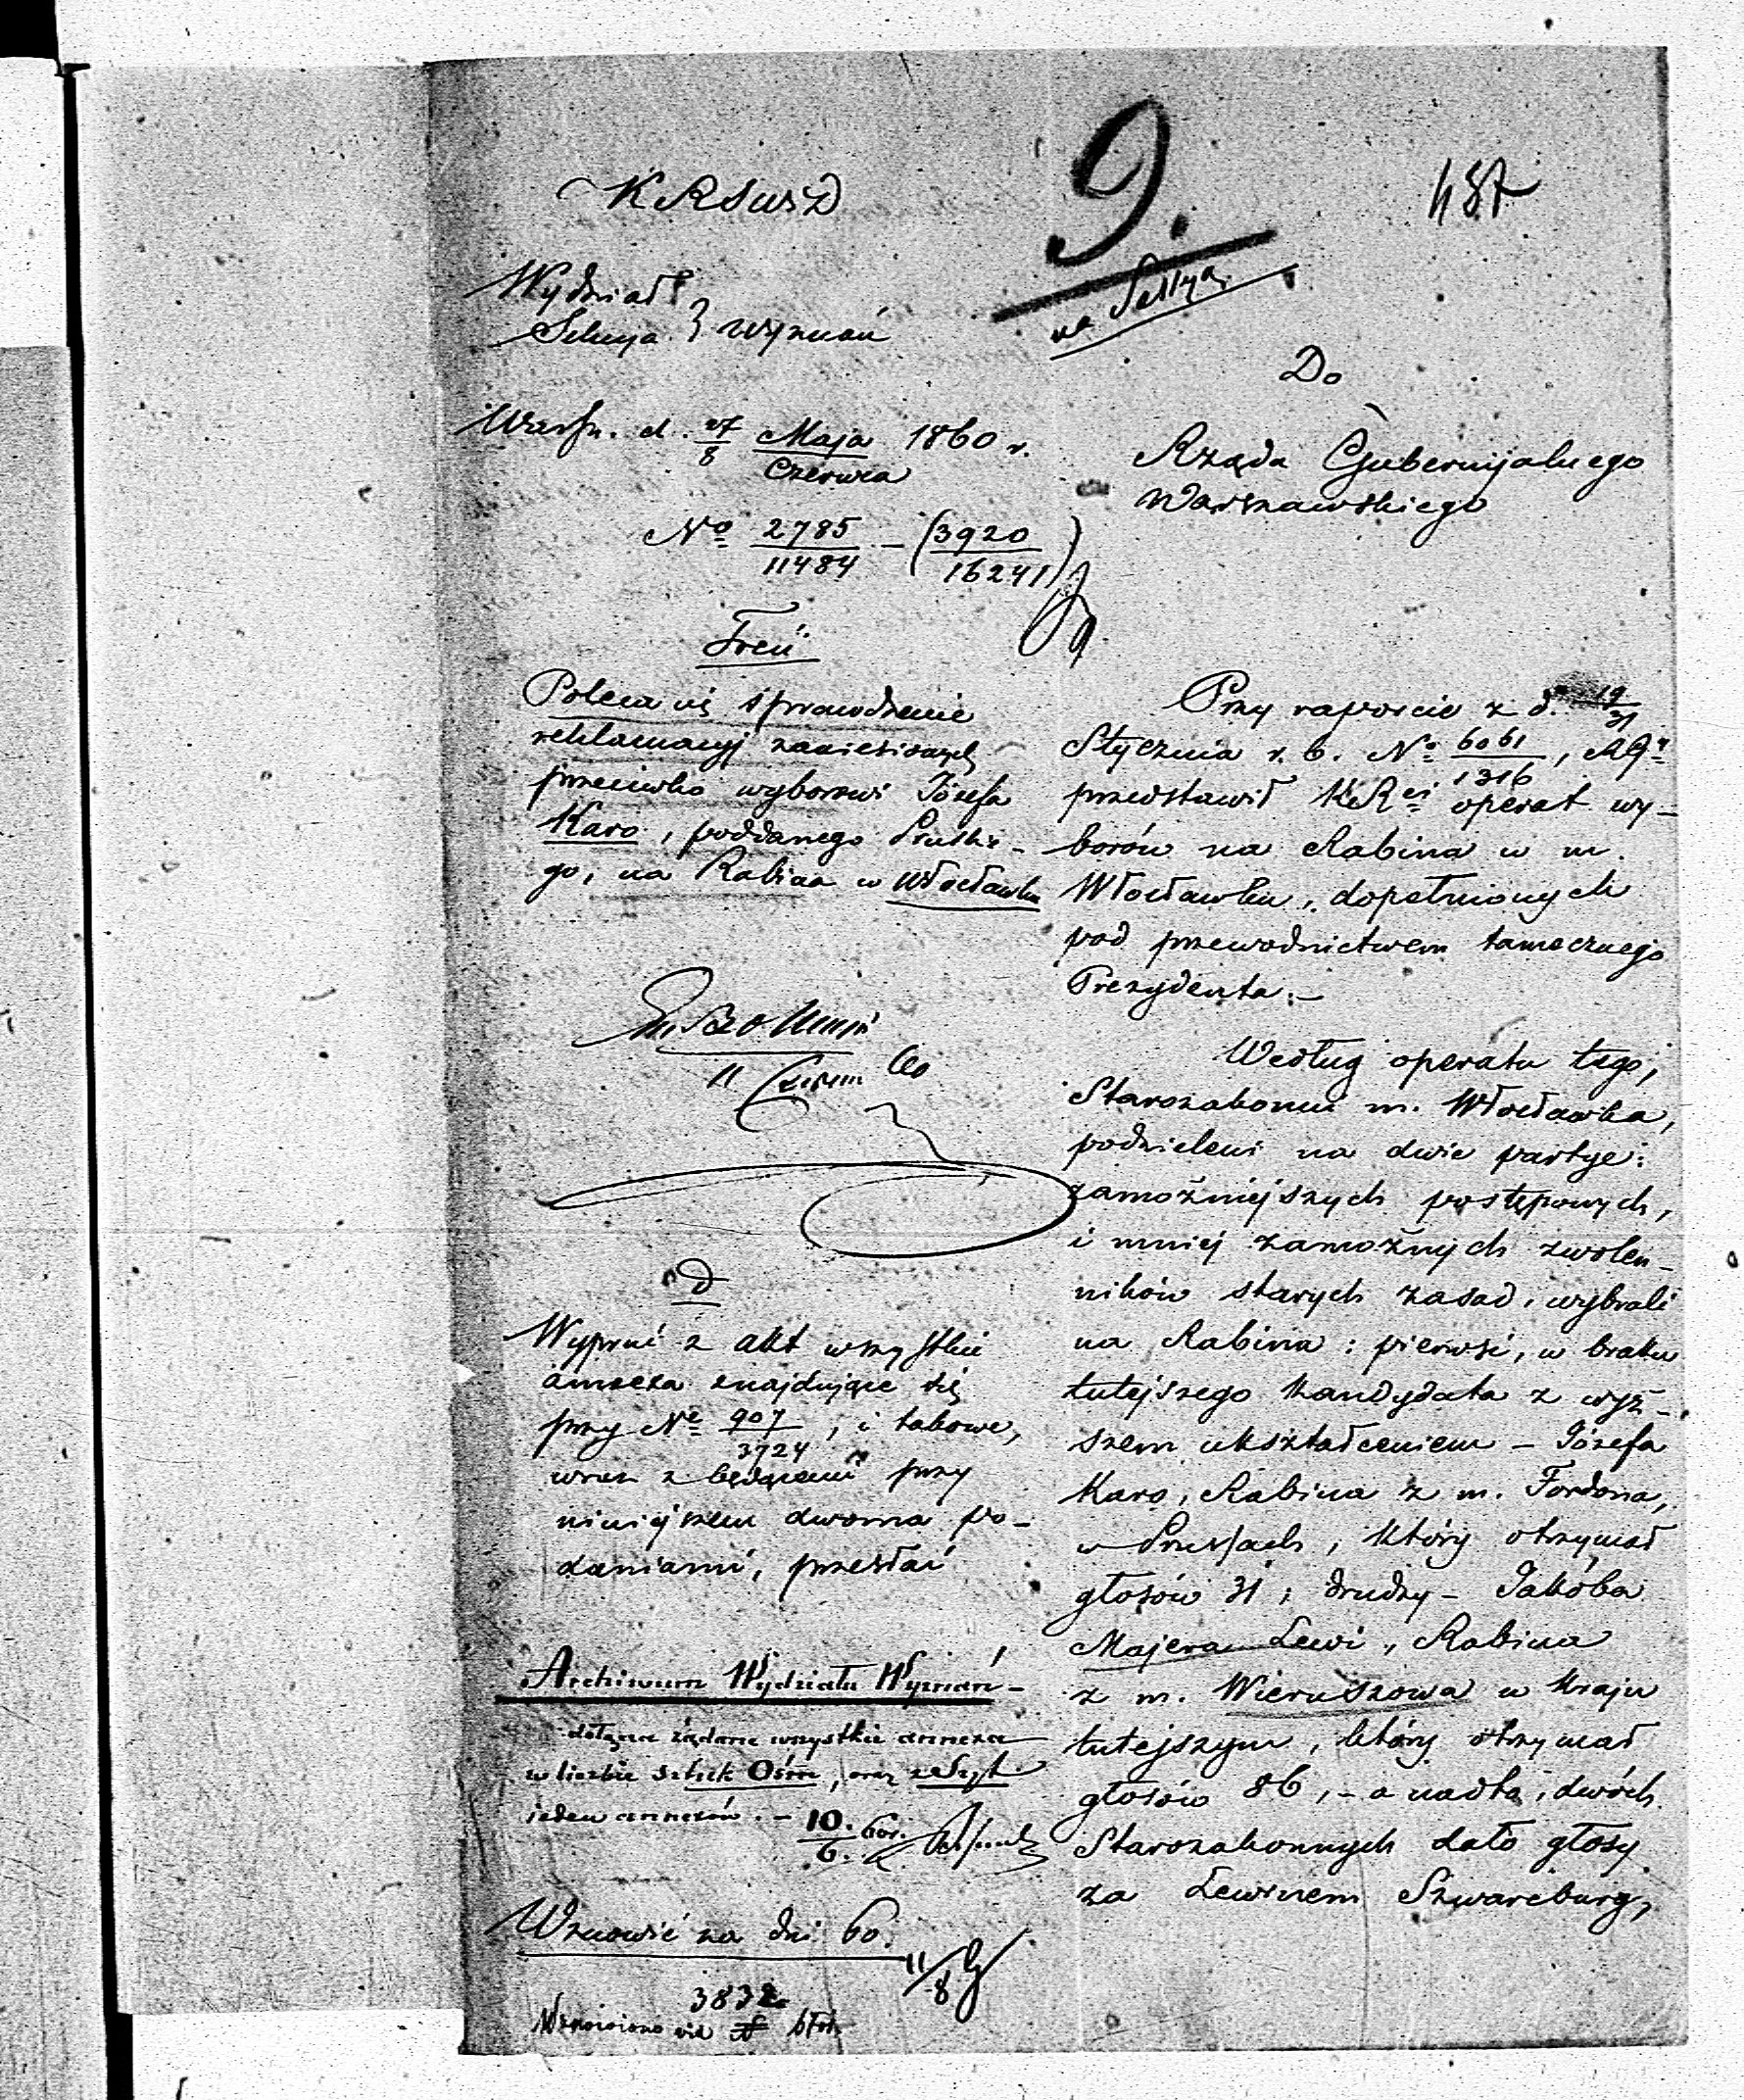 9.
487
na Sessyą
K R S W i D
Wydział
Sekcya } Wyznań
Warsz. d. 27/8 Maja/Czerwca 1860 r.
No 2785/11484 – (3920/16241)
Treść
Poleca się sprawdzenie
reklamacyj zaniesionych
przeciwko wyborowi Józefa
Karo, poddanego Pruskie-
go, na Rabina w Włocławku
11 Czerw 60
Wyprać z akt wszystkie
annexa znajdujące się
przy No 907/3724, i takowe,
wraz z będącemi przy
niniejszem dwoma po-
daniami, przesłać
Archiwum Wydziału Wyznań –
dołącza żądane wszystkie annexa
w liczbie sztuk Ośm, oraz zeszyt
jeden annexów. – 10./6. 60r.
Wznowić za dni 60.
11/8
3832
Wznowiono
Do
Rządu Gubernijalnego
Warszawskiego
Przy raporcie z d. 19/31
Stycznia r. b. No 6061/1316, RGy
przedstawił KRei operat wy-
borów na Rabina w m.
Włocławku, dopełnionych
pod przewodnictwem tamecznego
Prezydenta. –
Według operatu tego,
Starozakonni m. Włocławka,
podzieleni na dwie partye:
zamożniejszych postępowych,
i mniej zamożnych zwolen-
ników starych zasad, wybrali
na Rabina: pierwsi, w braku
tutejszego kandydata z wyż-
szem ukształceniem – Józefa
Karo, Rabina z m. Fordona,
w Prussach, który otrzymał
głosów 31; drudzy – Jakóba
Majera Lewi, Rabina
z m. Wieruszowa w kraju
tutejszym, który otrzymał
głosów 86, – a nadto, dwóch
Starozakonnych dało głosy
za Lewinem Szwarcburg,